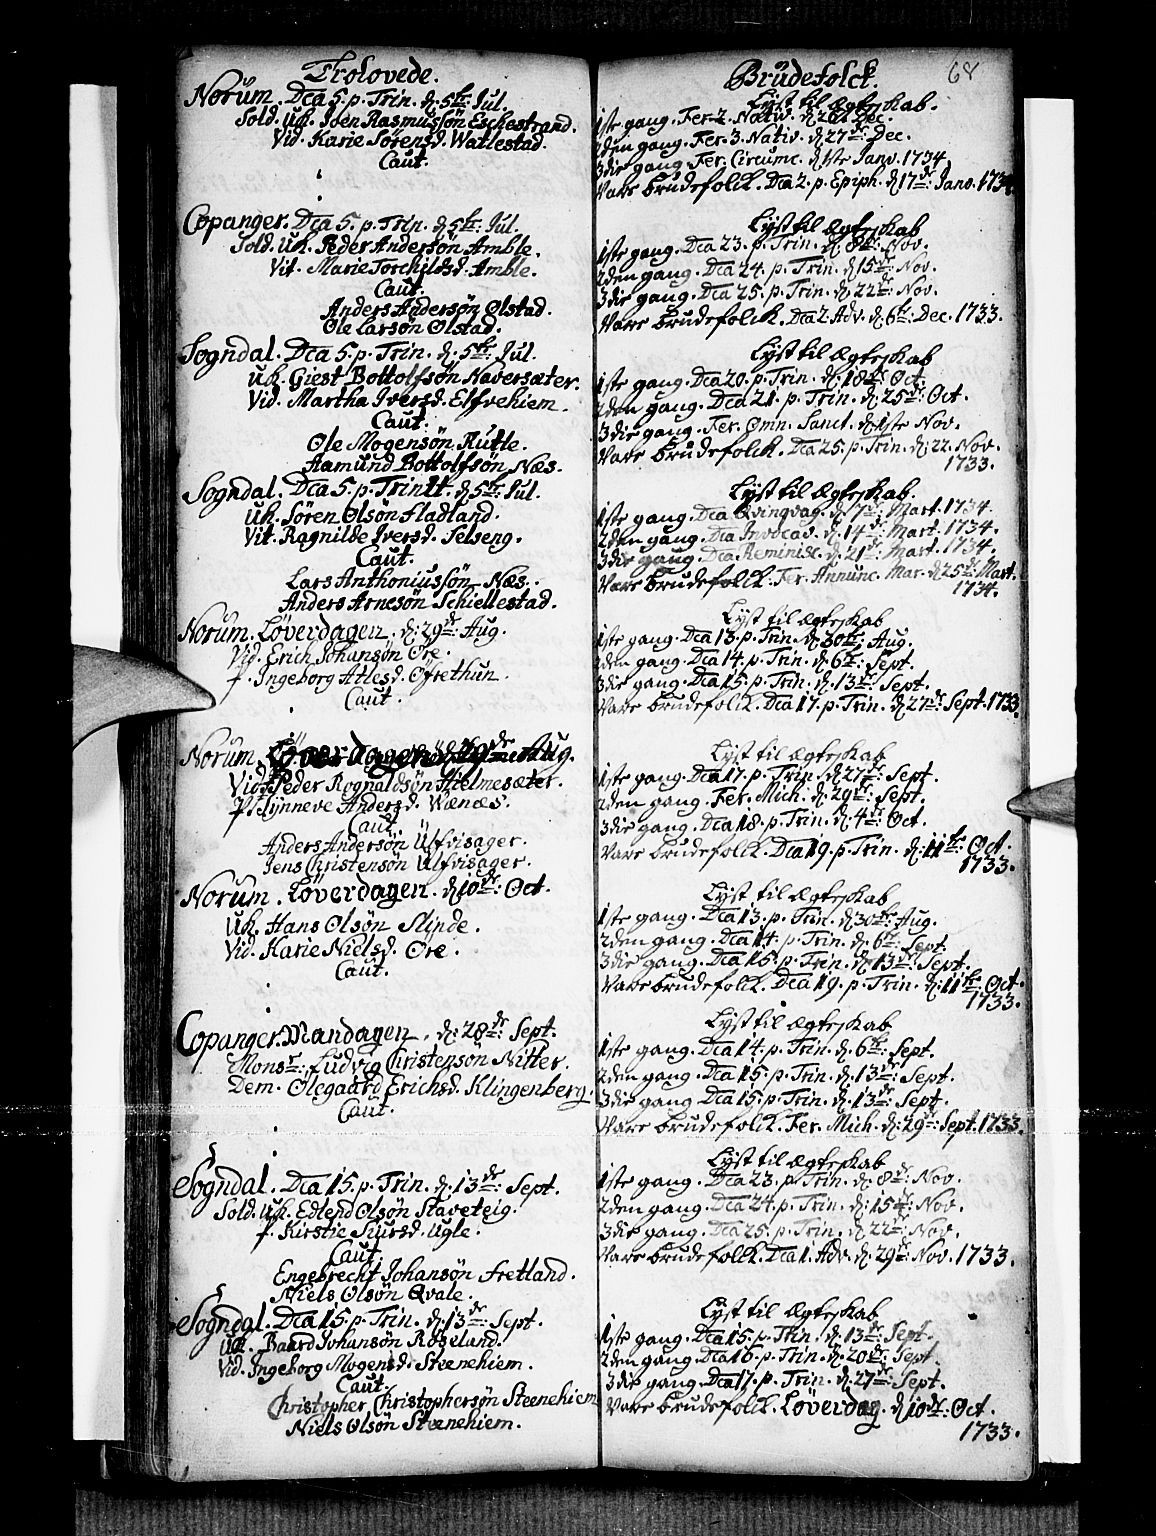 Trolovede.
Norum. Dca 5. p. Trin. d. 5te: Jul.
Sold. Uk. Joen Rasmussøn Eschestrand.
Vid. Karie Sørensd. Watlestad.
Caut.
Copanger. Dca 5. p. Trin. d. 5te: Jul.
Sold. Uk. Peder Andersøn Amble.
Vit. Marie Torchildsd. Amble.
Caut.
Anders Andersøn Ølstad.
Ole Larsøn Ølstad.
Sogndal. Dca 5. p. Trin. d. 5te: Jul.
Uk. Giest Bottolfsøn Naversæter.
Vid. Martha Iversd. Elfvehiem.
Caut.
Ole Mogensøn Rutle.
Aamund Bottolfsøn Næs.
Sogndal. Dca 5. p. Trinit. d. 5te: Jul.
Uk. Søren Olsøn Fladland.
Vit. Ragnilde Iversd. Selseng.
Caut.
Lars Anthoniussøn Næs.
Anders Arnesøn Schiellestad.
Norum. Løverdagen. d. 29de: Aug.
Vid. Erich Johansøn Øre.
P. Ingeborg Atlesd. Øfrethun.
Caut.
Norum. Løverdagen d. 29de Aug.
Vid. Peder Rognaldsøn Hielmesæter.
P. Synneve Andersd. Wænæs.
Caut.
Anders Andersøn Ulfvisager.
Jens Christensøn Ulfvisager.
Norum. Løverdagen. d. 10de: Oct.
Uk. Hans Olsøn Slinde.
Vid. Karie Nielsd. Øre.
Caut.
Copanger. Mandagen. d. 28de: Sept.
Monsr: Ludvig Christensøn Nitter.
Dem. Olegaard Erichsd. Klingenberg.
Caut.
Sogndal. Dca 15. p. Trin. d. 13de: Sept.
Sold. Uk. Edlend Olsøn Staveteig.
P. Kirstie Siursd. Ugle.
Caut.
Engebrecht Johansøn Fretland.
Niels Olsøn Qvale.
Sogndal. Dca 15. p. Trin. d. 13de: Sept.
Uk. Baard Johansøn Røseland.
Vid. Ingeborg Mogensd. Steenehiem.
Caut.
Christopher Christophersøn Steenehiem
Niels Olsøn Steenehiem.
Brudefolck.
68
Lyst til Ægteskab.
1ste gang. Fer. 2. Nativ. d. 26de Dec.
2den gang. Fer. 3. Nativ. d. 27de: Dec.
3die gang. Fer. Circumc. d. 1ste Janv. 1734.
Vare brudefolck. Dca 2. p. Epiph. d. 17de: Janv. 1734.
Lyst til Ægteskab
1ste gang. Dca 23. p. Trin. d. 8de: Nov.
2den gang. Dca 24. p. Trin. d. 15de: Nov.
3die gang. Dca 25. p. Trin. d. 22de: Nov.
Vare brudefolck. Dca 2. Adv. d. 6te: Dec. 1733.
Lyst til Ægteskab
1ste gang. Dca 20. p. Trin. d. 18de: Oct.
2den gang. Dca 21. p. Trin. d. 25de: Oct.
3die gang. Fer. Omn. Sanct. d. 1ste Nov.
Vare brudefolck. Dca 25. p. Trin. d. 22. Nov.
1733.
Lyst til Ægteskab.
1ste gang. Dca Qvingvag. d. 7de: Mart. 1734.
2den gang. Dca Invocav. d. 14de: Mart. 1734.
3die gang. Dca Reminisc. d. 21de: Mart. 1734.
Vare brudefolck. Fer. Annunc. Mar. d. 25de: Mart.
1734.
Lyst til Ægteskab
1ste gang. Dca 13. p. Trin. d. 30te: Aug.
2den gang. Dca 14. p. Trin. d. 6te: Sept.
3die gang. Dca 15. p. Trin. d. 13de: Sept.
Vare brudefolck. Dca 17. p. Trin. d. 27de: Sept. 1733.
Lyst til Ægteskab
1ste gang. Dca 17. p. Trin. d. 27de: Sept.
2den gang. Fer. Mich. d. 29de: Sept.
3die gang. Dca 18. p. Trin. d. 4de: Oct.
Vare brudefolck. Dca 19. p. Trin. d. 11te: Oct.
1733.
Lyst til Ægteskab
1ste gang. Dca 13. p. Trin. d. 30te: Aug.
2den gang. Dca 14. p. Trin. d. 6te: Sept.
3die gang. Dca 15. p. Trin. d. 13de: Sept.
Vare brudefolck. Dca 19. p. Trin. d. 11te: Oct.
1733.
Lyst til Ægteskab
1ste gang. Dca 14. p. Trin. d. 6te: Sept.
2den gang. Dca 15. p. Trin. d. 13de: Sept.
3die gang Dca 15. p. Trin. d. 13de: Sept.
Vare brudefolck. Fer. Mich. d. 29de: Sept. 1733.
Lyst til Ægteskab
1ste gang. Dca 23. p. Trin. d. 8de: Nov.
2den gang. Dca 24. p. Trin. d. 15de: Nov.
3die gang. Dca 25. p. Trin. d. 22de: Nov.
Vare brudefolck. Dca 1. Adv. d. 29de: Nov. 1733.
Lyst til Ægteskab
1ste gang. Dca 15. p. Trin. d. 13de: Sept.
2den gang. Dca 16. p. Trin. d. 20de: Sept.
3die gang. Dca 17. p. Trin. d. 27de: Sept.
Vare brudefolck. Løverdag. d. 10de: Oct.
1733.